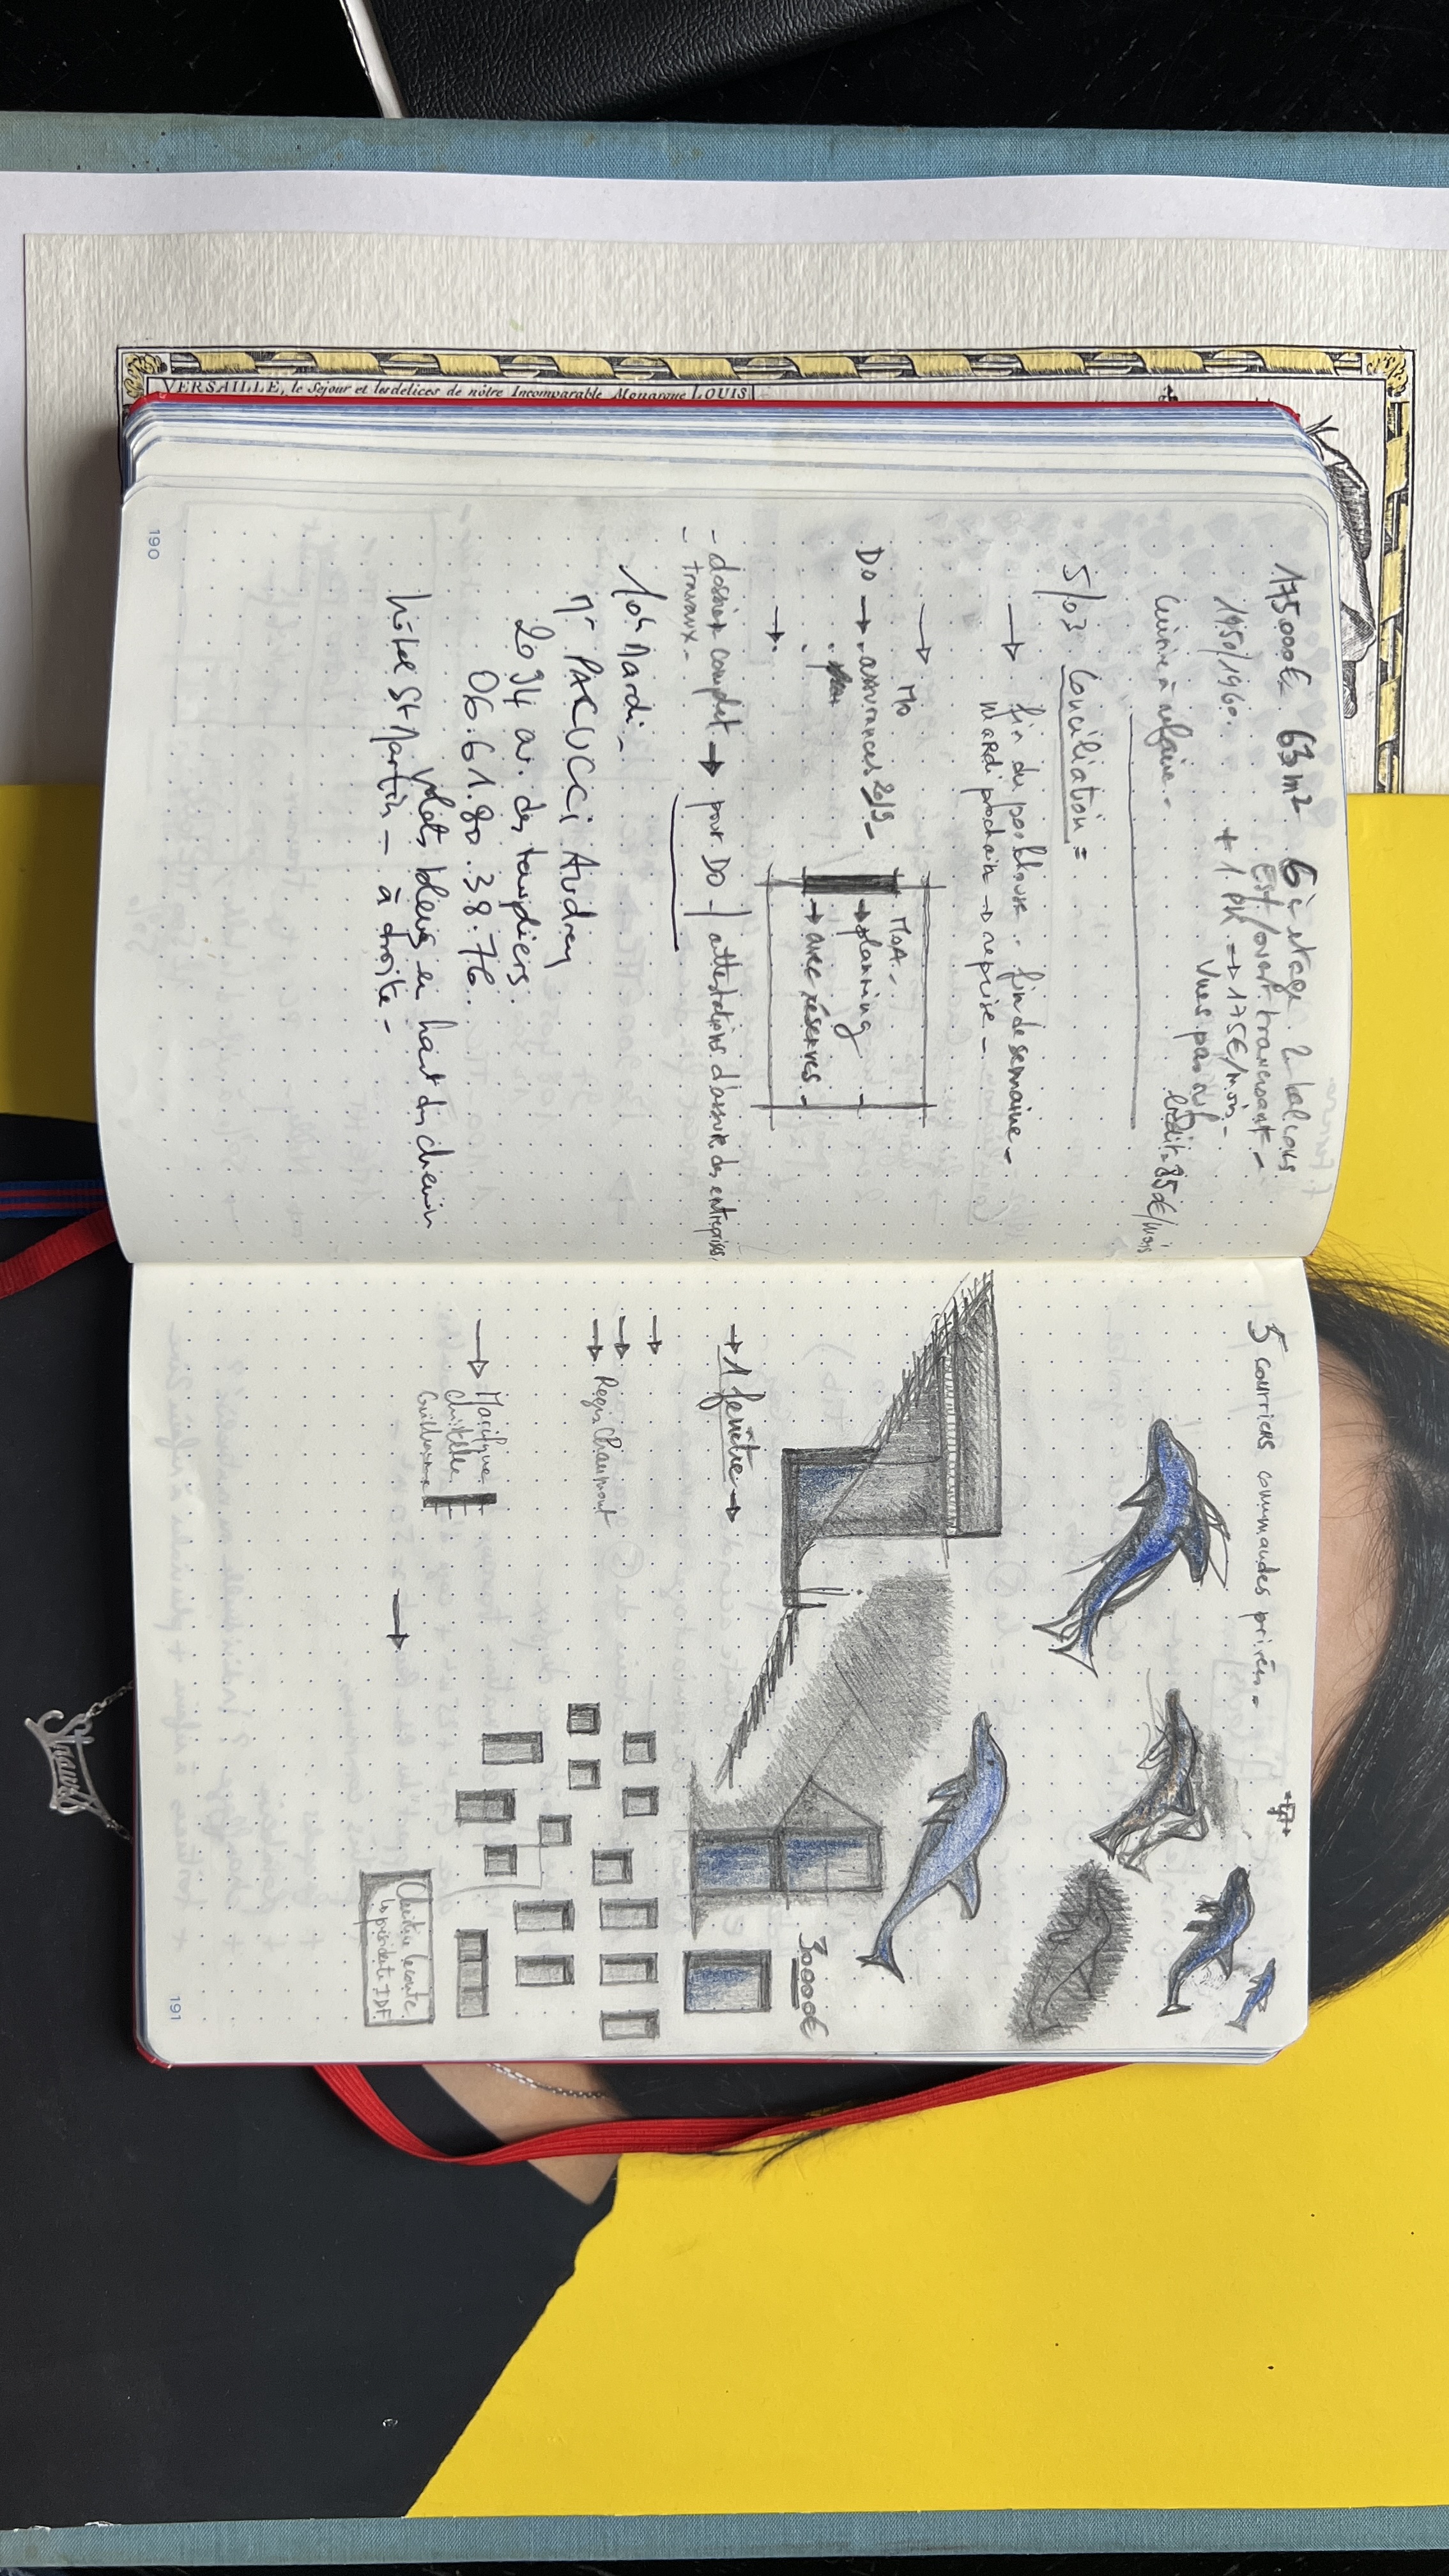 VERSAILLE, le Sejour et les delices de nôtre Incomparable Monarque LOUIS
190
175000€ 63m² 6è étage 2 balcons
Est/ouest traversant -
1950/1960. + 1 Pk → 175€/mois -
Vues pas
Cuisine à refaire - crédit. 85€/mois
5/03 Conciliation =
→ fin du - fin de semaine -
Mardi prochain → reprise -
→ MO
DO → . assurances 2019 -
MOA -
→ planning
→ avec réserves -
→
- dossier complet → pour DO - attestations d'assur. des entreprises
- travaux -
10h Mardi -
Mr PACUCCi Audrey
2094 av. des templiers.
06.61.80.38.76.
Volets bleus en haut du chemin
hôtel St Martin - à droite -
5 courriers commandes privées -
30000€
→ 1 fenêtre →
→
→
→ Regis Chaumont
→
Christelle
Guillaume
→
Présidente IDF
191